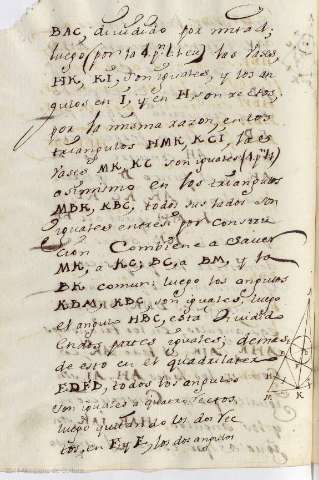 BAC, dividido por mitad,
luego (por la 4. p. l. eu) las vases
HK, KI, son iguales, y los an
gulos en I, y en H son rectos,
por la misma razon, en los
triangulos HMK, KCI, las
vases MK, KC son iguales (4. p. l.)
asimismo en los triangulos
MBK, KBC, todos sus lados son
iguales entre si por constru
cion Combiene a saver
MK, a KC, BC, a BM, y la
BK comun, luego los angulos
KBM, KBC, son iguales, luego
el angulo HBC, esta dividido
en dos partes iguales; demas,
de esto en el quadrilatero
todos los angulos
son iguales a quatro rectos,
luego quitando los dos rec
tos, en E y F, los dos angulos